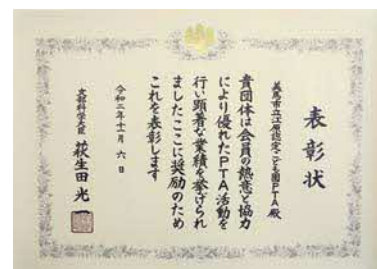 表彰状
美馬市立江原認定こども園PTA殿
貴団体は会員の熱意と協力
により優れたPTA活動を
行い顕著な業績を挙げられ
ましたここに奨励のため
これを表彰します
令和二年十一月六日
文部科学大臣 萩生田光一